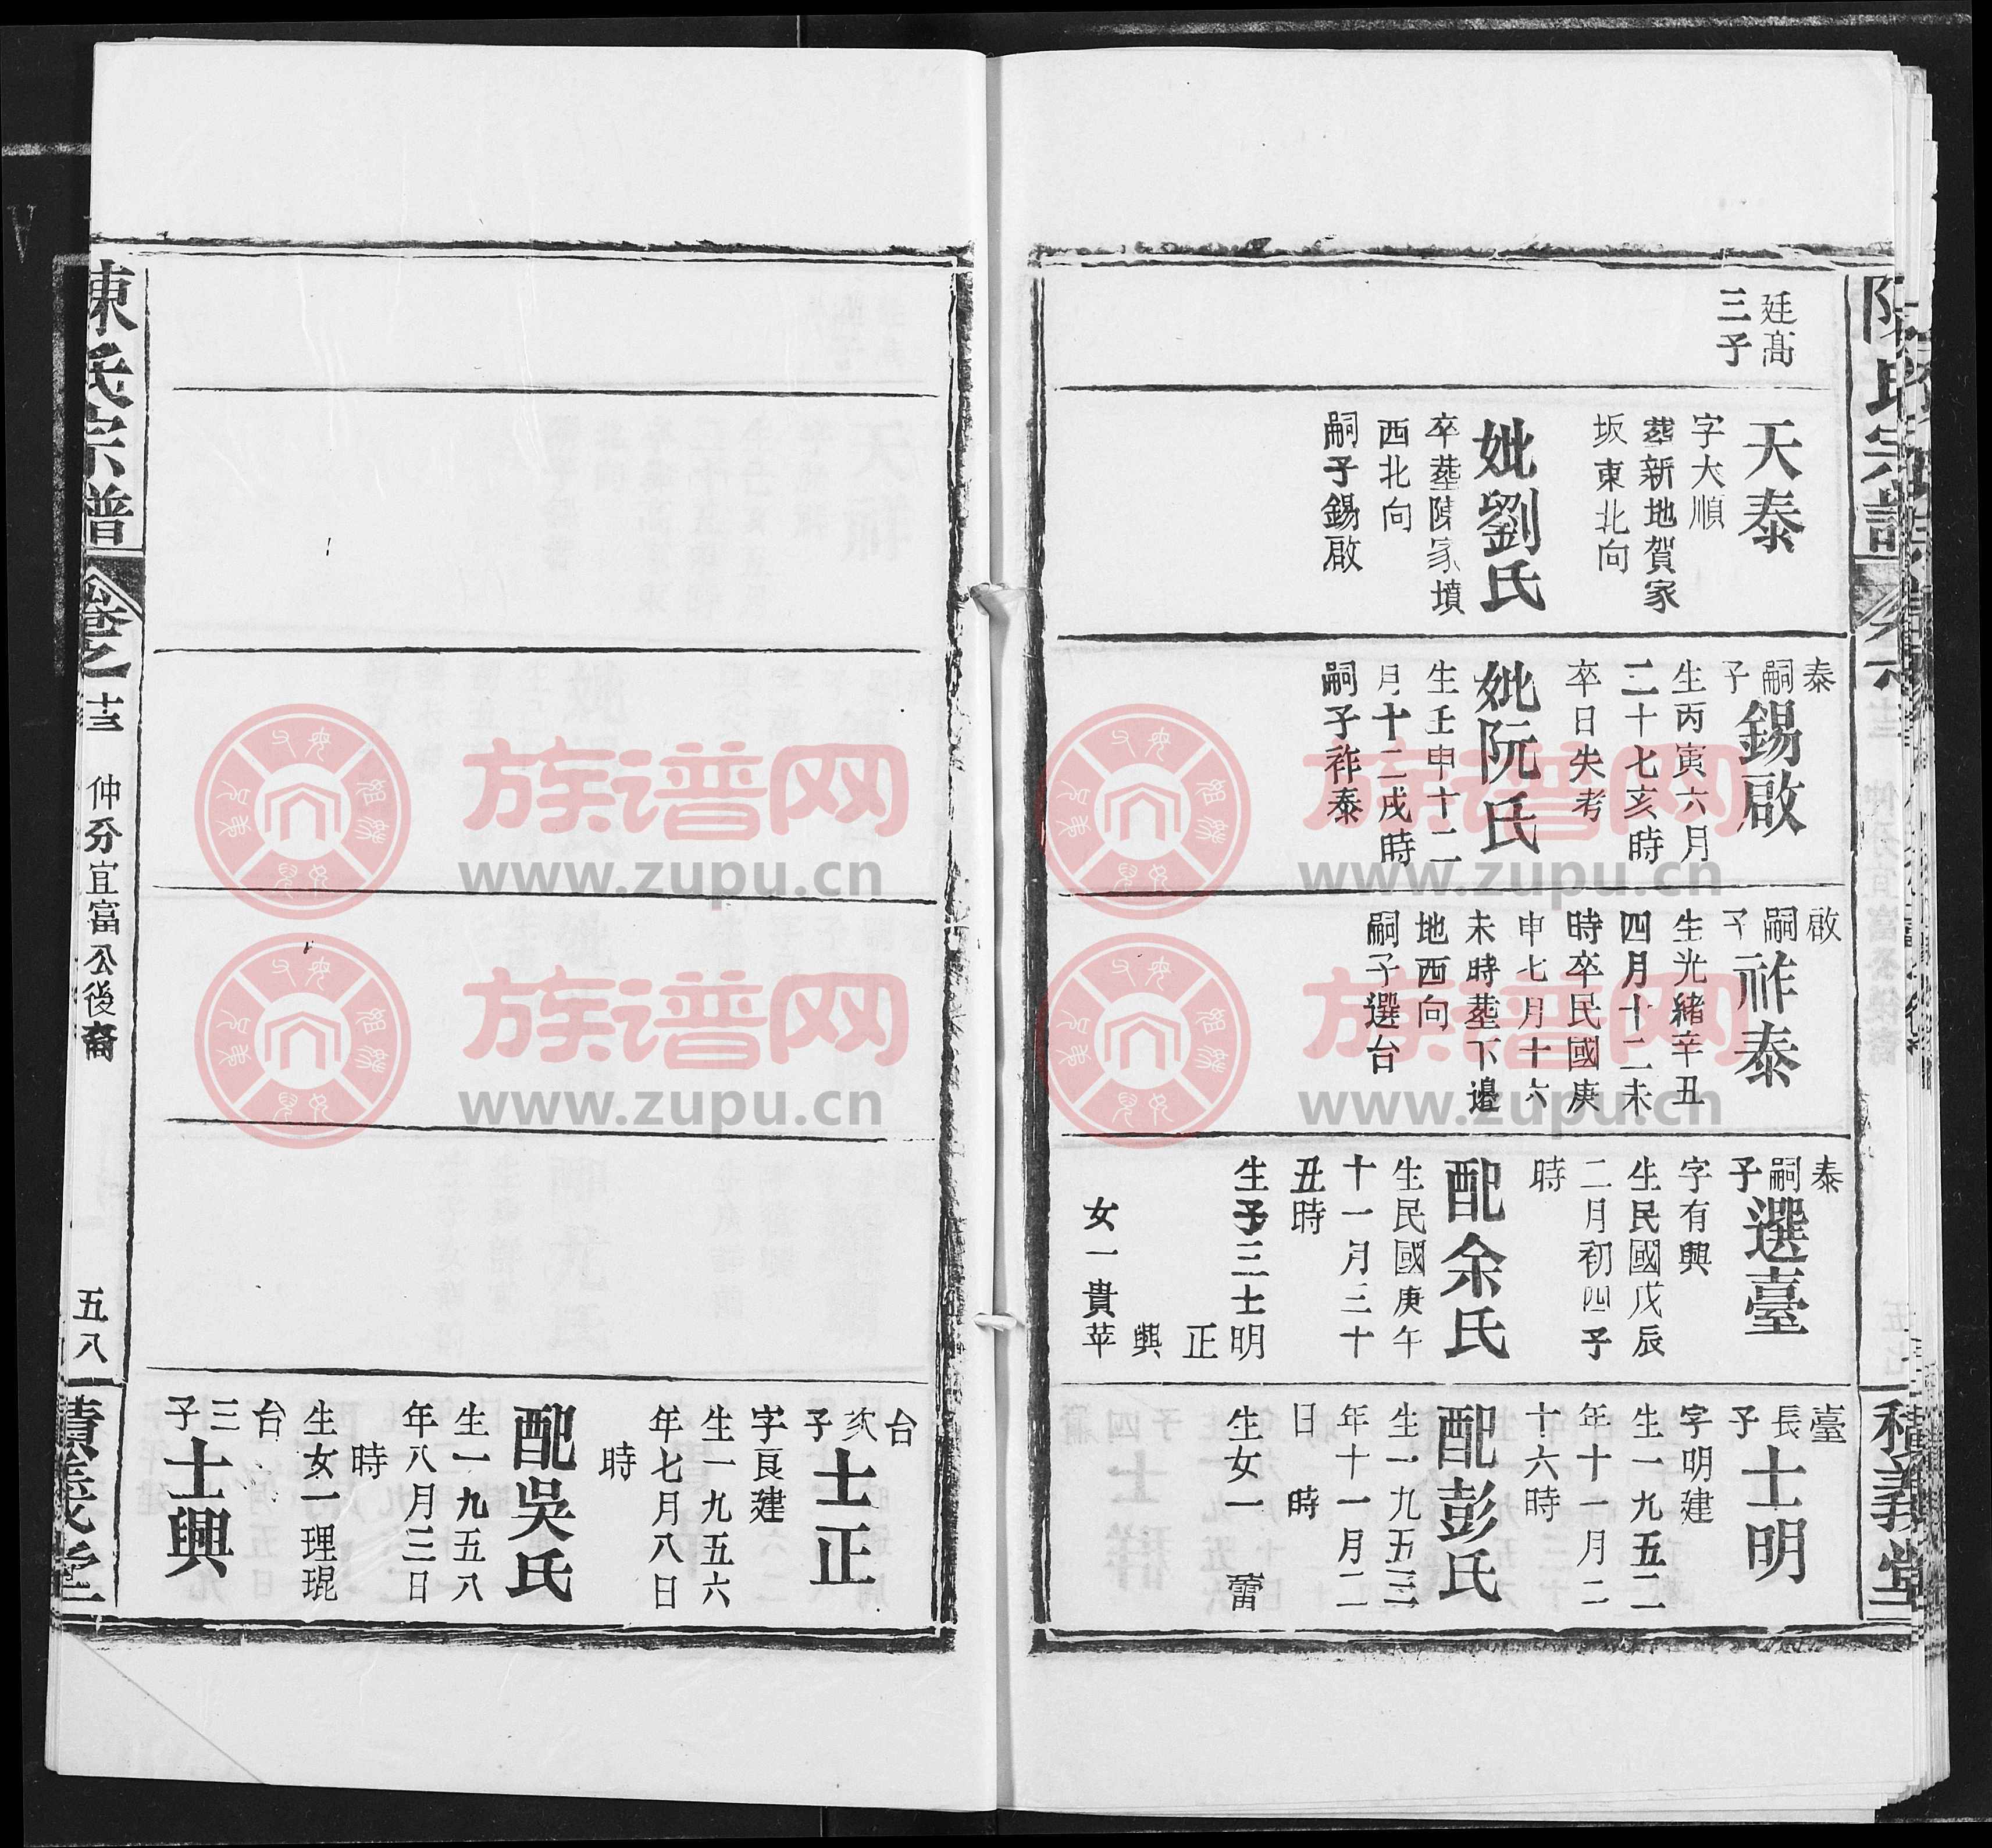 廷高
三子
天泰
字大順
墓新地賀家
坂東北向
妣劉氏
卒墓陳家墳
西北向
嗣子錫啟
泰
嗣
子
錫啟
生丙寅六月
二十七亥時
卒日失考
妣阮氏
生壬申十二
月十二戌時
嗣子祚泰
啟
嗣
子
祚泰
生光緒辛丑
四月十二未
時卒民國庚
申七月十六
未時墓下邉
地西向
嗣子選台
泰
嗣
子
選臺
字有興
生民國戊辰
二月初四子
時
配余氏
生民國庚午
十一月三十
丑時
生子三士明
正
興
女一貴苹
臺
長
子
士明
字明建
生一九五二
年十一月二
十六時
配彭氏
生一九五三
年十一月二
日 時
生女一 蕾
台
次
子
士正
字良建
生一九五六
年七月八日
時
配吳氏
生一九五八
年八月三日
時
生女一理琨
台
三
子
士興
陳氏宗譜
卷之
十三
仲分宜富公後裔
五八
積義堂
族谱网
www.zupu.cn
族谱网
www.zupu.cn
族谱网
www.zupu.cn
族谱网
www.zupu.cn